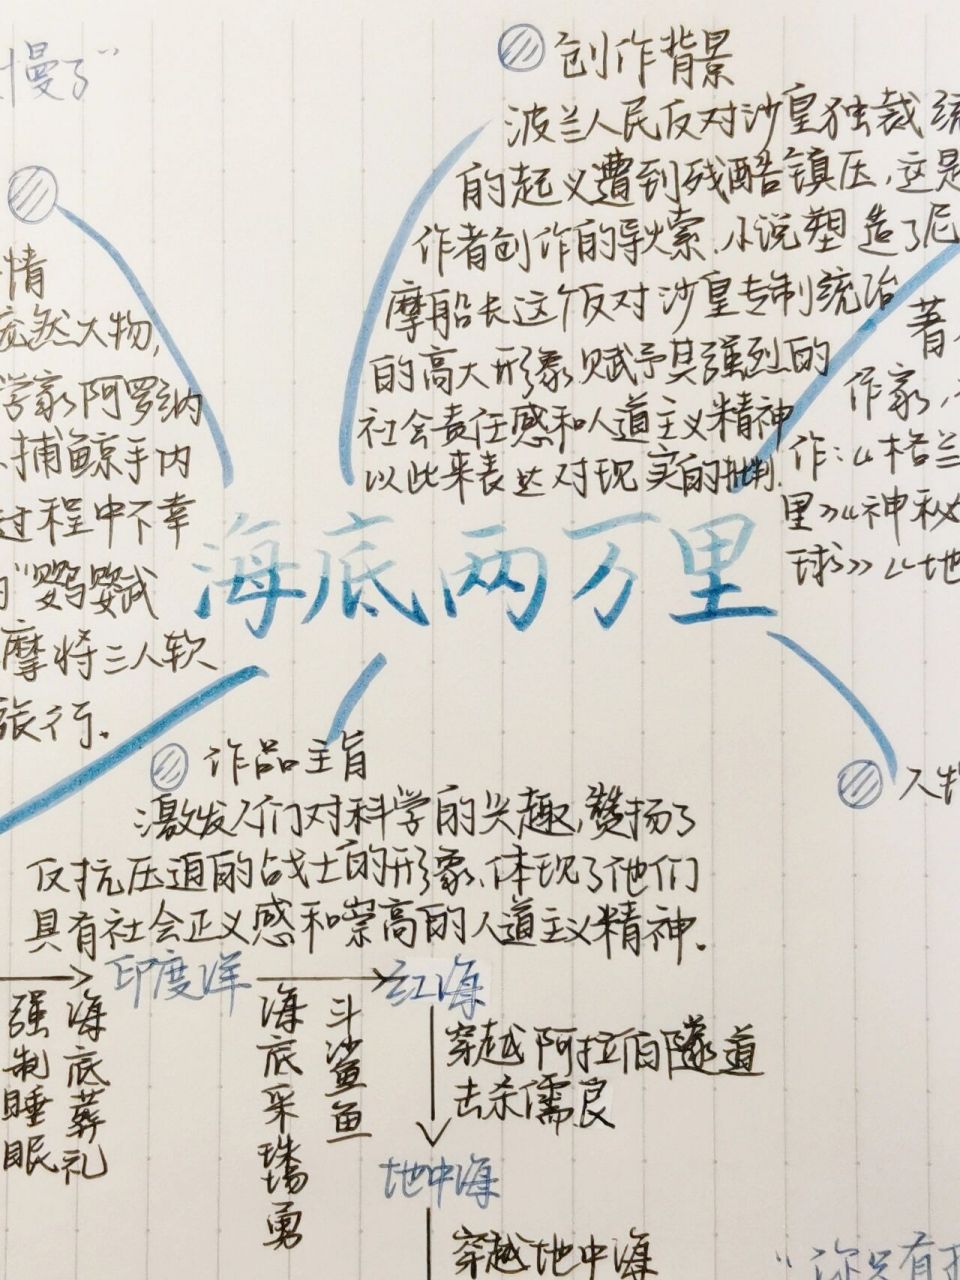 慢了”
创作背景
波兰人民反对沙皇独裁统
的起义遭到残酷镇压,这是
作者创作的导火索.小说塑造了尼
摩船长这个反对沙皇专制统治
的高大形象,赋予其强烈的
社会责任感和人道主义精神
以此来表达对现实的批判.
情
庞然大物,
学家阿罗纳
捕鲸手内
过程中不幸
的“鹦鹦鹉
摩将三人软
旅行.
著
作家,
作:《格兰
里》《神秘
球》《地
海底两万里
作品主旨
激发人们对科学的兴趣,赞扬了
反抗压迫的战士的形象,体现了他们
具有社会正义感和崇高的人道主义精神.
人物
印度洋
红海
强制睡眠
海底葬礼
海底采珠场勇
斗鲨鱼
穿越阿拉伯隧道
去杀儒艮
地中海
穿越地中海
“你只有